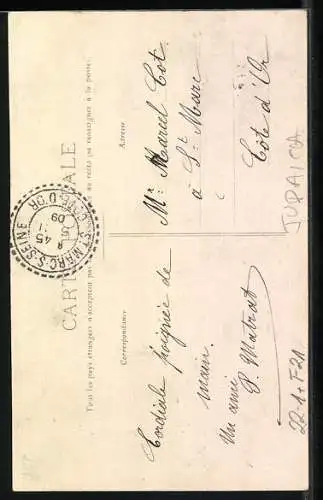 CARTE POSTALE
Tous les pays étrangers n'acceptent pas la correspondance au recto (se renseigner à la poste).
Correspondance
Adresse
Cordiale poignée de
main.
Un ami
P. Matrat
Mr Marcel Cot
à St Marc
Côte d'Or
ST MARC S SEINE
CÔTE-D'OR
8 45
09
22-1+F-21